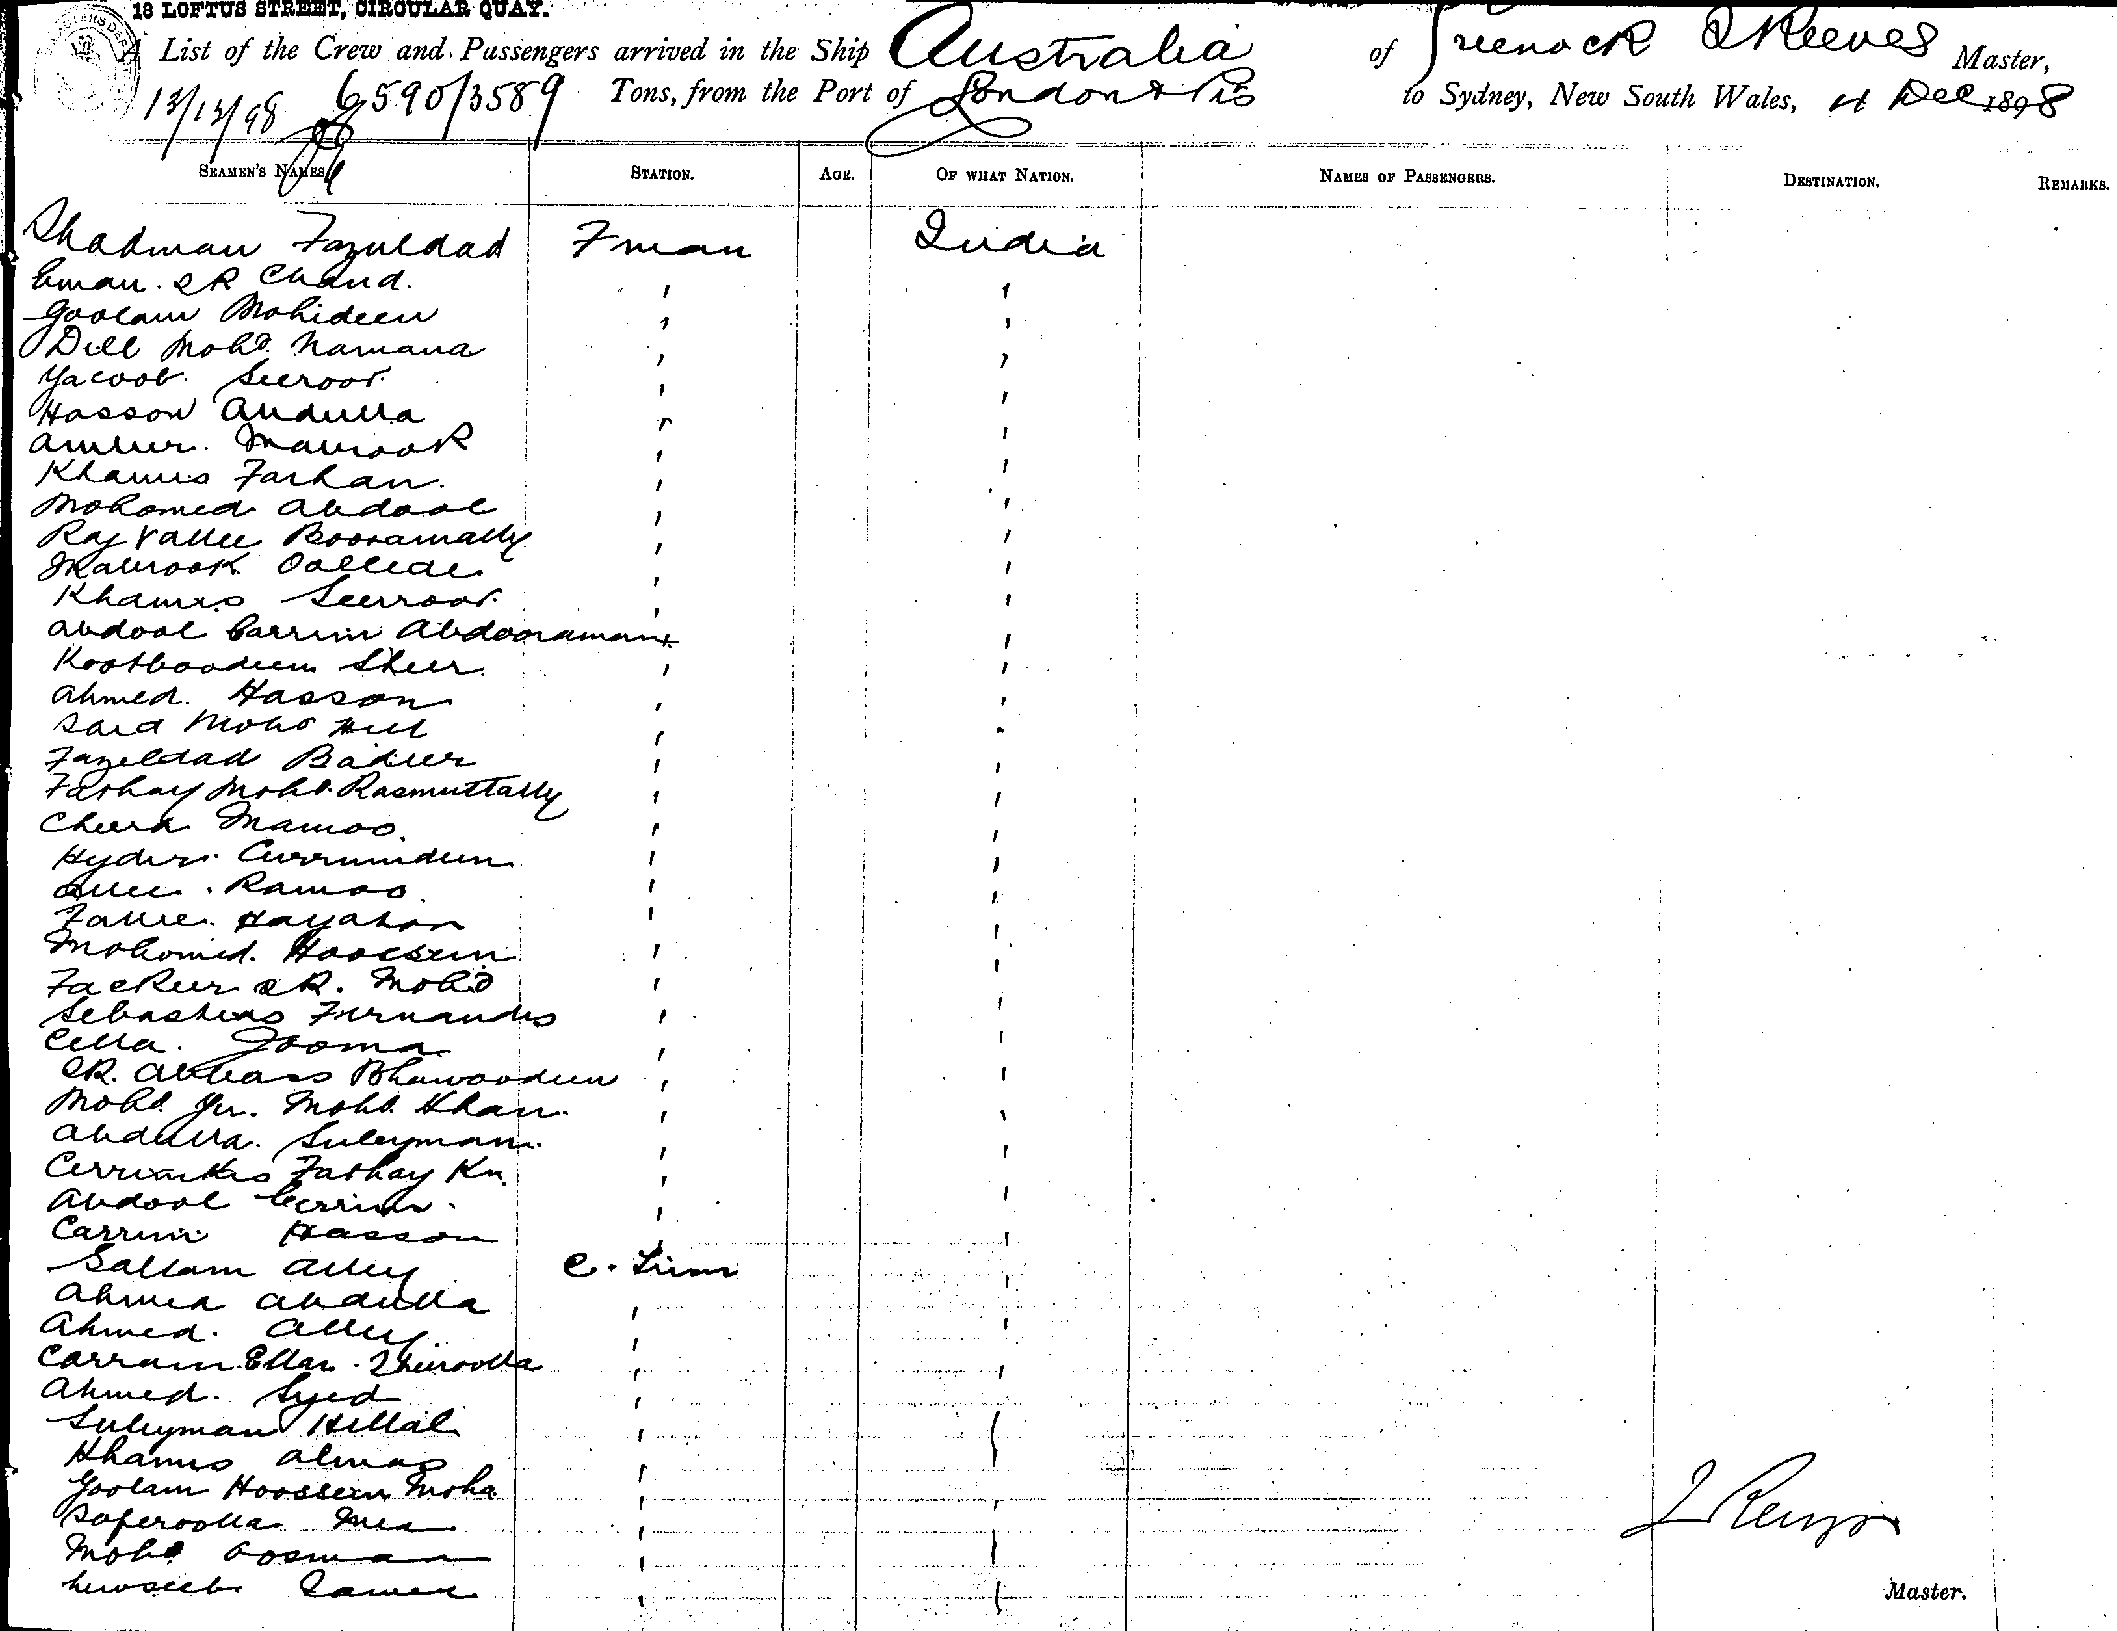 18 LOFTUS STREET, CIRCULAR QUAY.
A List of the Crew and Passengers arrived in the Ship Australia of Greenock Reeves Master,
13/12/98 6590/3589 Tons, from the Port of London & Pts to Sydney, New South Wales, 11 Dec 1898
SEAMEN'S NAMES. STATION. AGE. OF WHAT NATION. NAMES OF PASSENGERS. DESTINATION. REMARKS.
Shadman Fazuldad Fman India
Eman. SK Chand. " "
Goolam Mohideen " "
Dill Mohd. Namana " "
Yacoob. Seeroor. " "
Hasson Abdulla " "
Amber. Mabrook " "
Khamis Farhan. " "
Mohomed Abdool " "
Raj Vallee Booramally " "
Mabrook " "
Khamis Seerroor. " "
Abdool Carrim Abdooraman " "
Kootboodeen Sheer. " "
Ahmed. Hasson " "
Said Mohd " "
Fazeldad " "
Fathay Mohd. Rasmuttally " "
Mamoo. " "
Hyder. Currumdeen " "
Allee. Ramoo " "
Hayahan " "
Mohomed. Hoossein " "
Fackeer SK. Mohd " "
Sebastiao Fernandes " "
Cella. Jooma " "
SK. Abbass Bhawoodeen " "
Mohd. Mohd. Khan. " "
Abdulla. Suleyman. " "
Fathay Kn. " "
Abdool Cerrim. " "
Carrim Hasson " "
Sallam Alley C. Trimr "
Ahmed Abdulla " "
Ahmed. Alley " "
Carram Ellar. " "
Ahmed. Syed "
Suleyman Hillal " "
Khamis Almas "
Goolam Hoossein Moha " "
Saferoolla Mea "
Mohd Oosman " "
" "
Master.